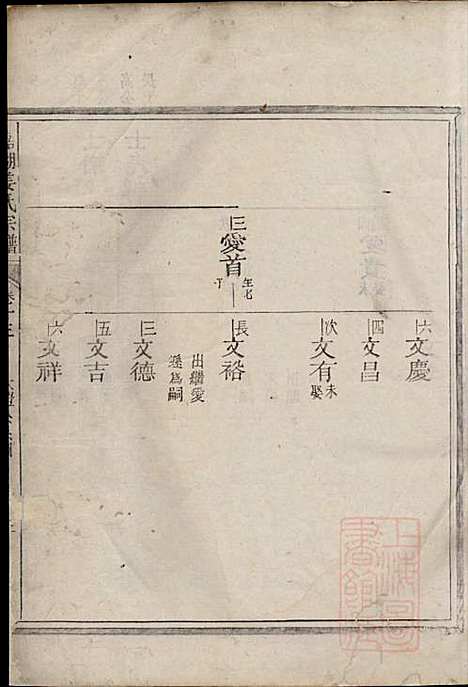 三愛首
生七
丁
六文慶
四文昌
次文有
未
娶
長文裕
出繼愛
遜為嗣
三文德
五文吉
六文祥
上海圖
書館藏